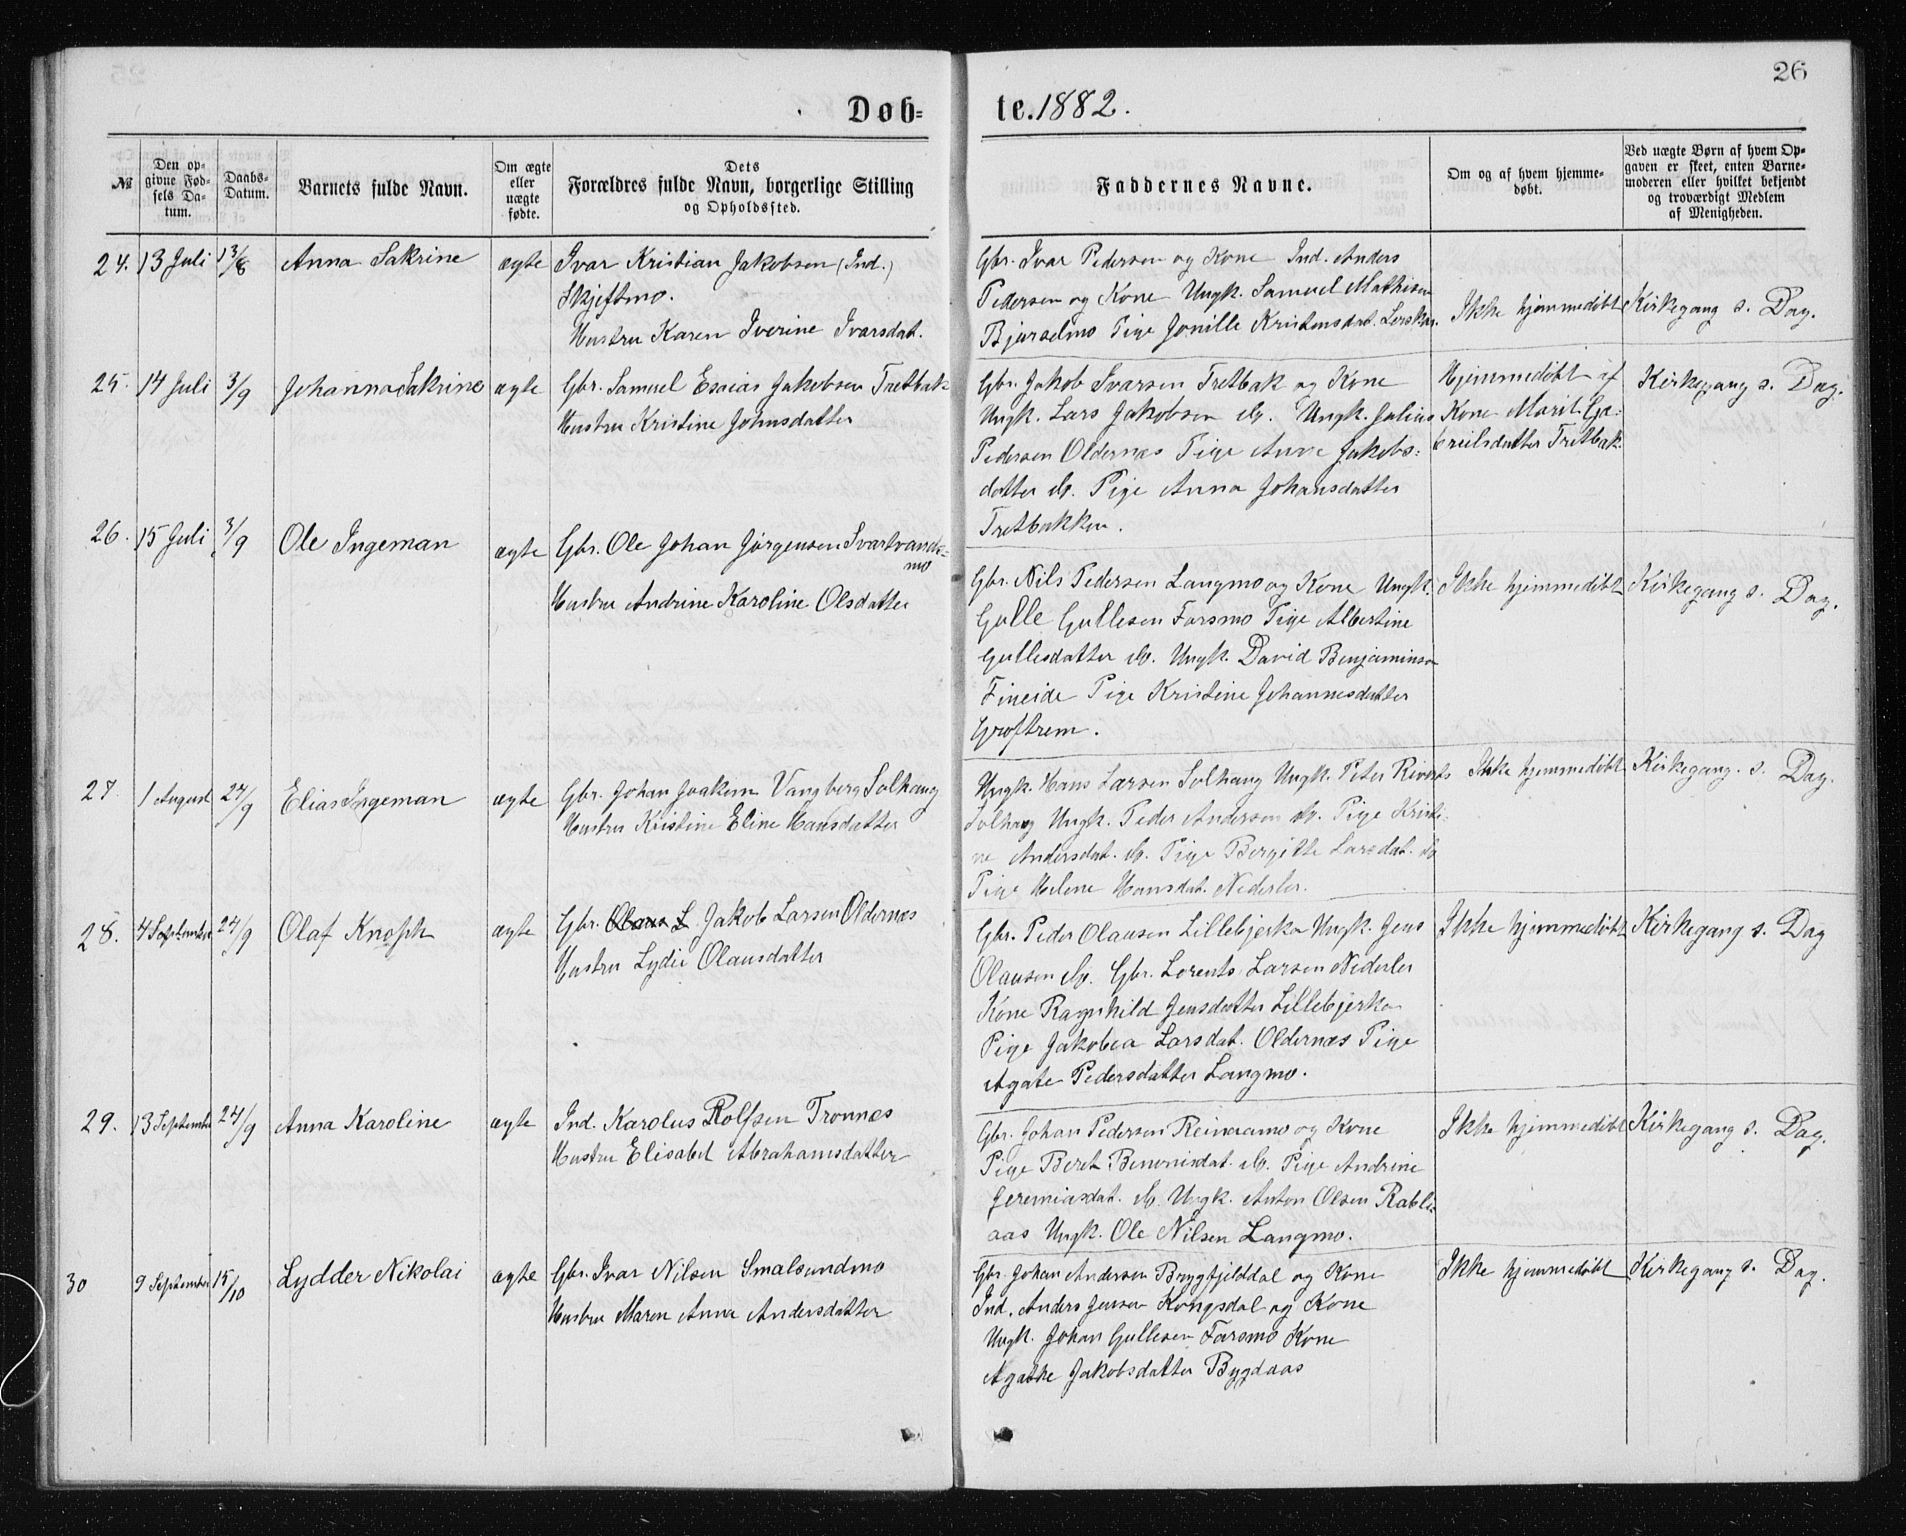 26
Døb= te. 1882.
№
Den op-
givne Fød-
sels Da-
tum.
Daabs-
Datum.
Barnets fulde Navn.
Om ægte
eller
uægte
fødte.
Dets
Forældres fulde Navn, borgerlige Stilling
og Opholdssted.
Faddernes Navne.
Om og af hvem hjemme-
døbt.
Ved uægte Børn af hvem Op-
gaven er skeet, enten Barne-
moderen eller hvilket bekjendt
og troværdigt Medlem
af Menigheden.
24. 13 Juli 13/8 Anna Sakrine ægte
Ivar Kristian Jakobsen (Ind.)
Skjeftmo.
Hustru Karen Iverine Ivarsdat.
Gbr. Ivar Pedersen og Kone Ind. Anders
Pedersen og Kone Ungk. Samuel Mathisen
Bjerselmo Pige Jonille Kristensdat.
Ikke hjemmedøbt Kirkegang s. Dag.
25. 14 Juli 3/9 Johanna Sakrine ægte
Gbr. Samuel Esaias Jakobsen Tretbak
Hustru Kristine Johnsdatter
Gbr. Jakob Ivarsen Tretbak og Kone
Ungk. Lars Jakobsen ib. Ungk. Julius
Pedersen Oldernæs Pige Anne Jakobs-
datter ib. Pige Anna Johansdatter
Tretbakken.
Hjemmedøbt af
Kone Marit Ga-
brielsdatter Tretbak
Kirkegang s. Dag.
26. 15 Juli 3/9 Ole Ingeman ægte
Gbr. Ole Johan Jørgensen Svartvands-
mo
Hustru Andrine Karoline Olsdatter
Gbr. Nils Pedersen Langmo og Kone Ungk.
Gulle Gullesen Farsmo Pige Albertine
Gullesdatter ib. Ungk. David Benjaminsen
Fineide Pige Kristine Johannesdatter
Grøftrem.
Ikke hjemmedøbt Kirkegang s. Dag.
27. 1 August 24/9 Elias Ingeman ægte
Gbr. Johan Joakem Vangberg Solhaug
Hustru Kristine Eline Hansdatter
Ungk. Hans Larsen Solhaug Ungk. Peter
Solhaug Ungk. Peder Andersen ib. Pige Kristi-
ne Andersdat. ib. Pige Bergitte Larsdat. ib
Pige Helene Hansdat. Nederler.
Ikke hjemmedøbt Kirkegang. s. Dag.
28. 4 September 24/9 Olaf Knoph ægte
Gbr. Olaus L Jakob Larsen Oldernæs
Hustru Lydie Olausdatter
Gbr. Peder Olausen Lillebjerka Ungk. Jens
Olausen ib. Gbr. Lorents Larsen Nederler
Kone Ragnhild Jensdatter Lillebjerka
Pige Jakobea Larsdat. Oldernæs Pige
Agate Pedersdatter Langmo.
Ikke hjemmedøbt Kirkegang s. Dag
29. 13 September 24/9 Anna Karoline ægte
Ind. Karolus Rolfsen Tronnæs
Hustru Elisabet Abrahamsdatter
Gbr. Johan Pedersen Reinaamo og Kone
Pige Beret Benonisdat. ib. Pige Andrine
Jeremiasdat. ib. Ungk. Anton Olsen Rabli-
aas Ungk. Ole Nilsen Langmo.
Ikke hjemmedøbt Kirkegang s. Dag.
30 9 September 15/10 Lydder Nikolai ægte
Gbr. Ivar Nilsen Smalsundmo
Hustru Maren Anna Andersdatter
Gbr. Johan Andersen Brygfjelddal og Kone
Ind. Anders Jensen Kongsdal og Kone
Ungk. Johan Gullesen Farsmo Kone
Agathe Jakobsdatter Bygdaas
Ikke hjemmedøbt Kirkegang s. Dag.